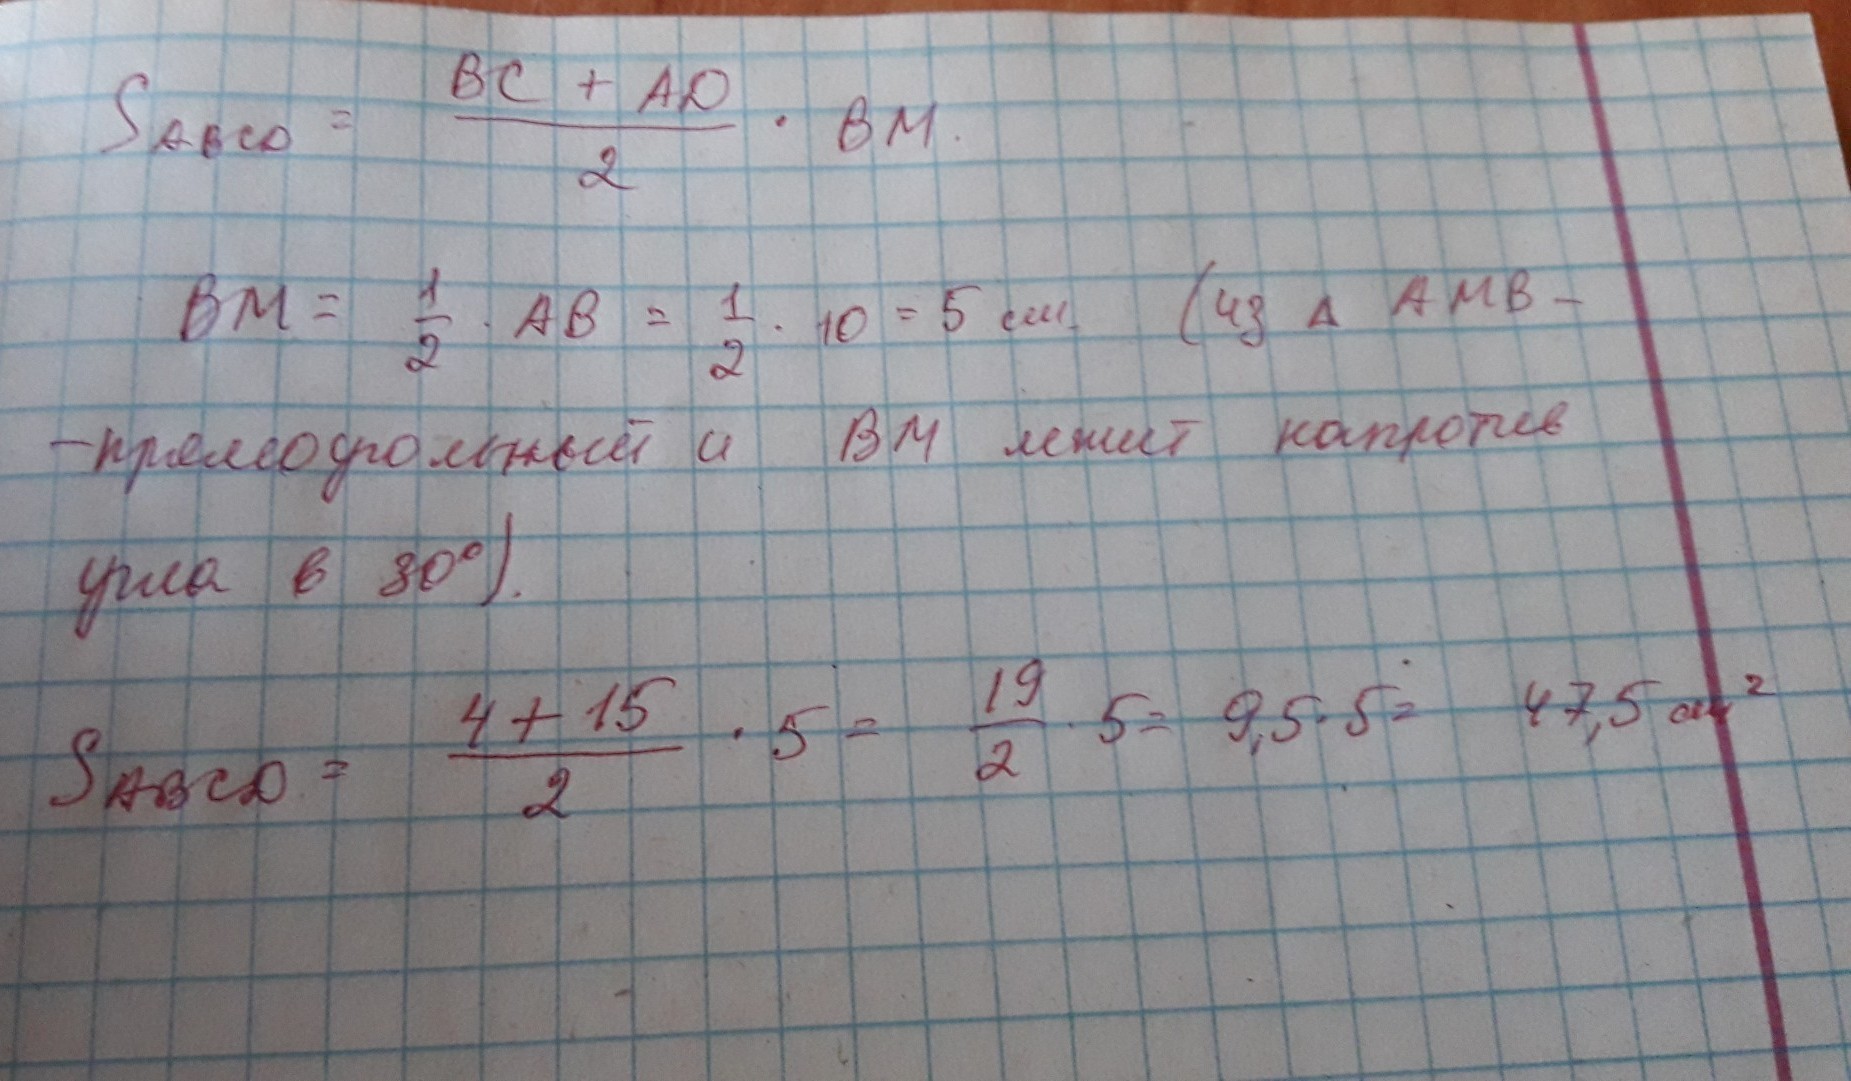 S ABCD = (BC + AD)/2 · BM.
BM = 1/2 · AB = 1/2 · 10 = 5 см (из Δ AMB –
– прямоугольный и BM лежит напротив
угла в 30°).
S ABCD = (4 + 15)/2 · 5 = 19/2 · 5 = 9,5 · 5 = 47,5 см²